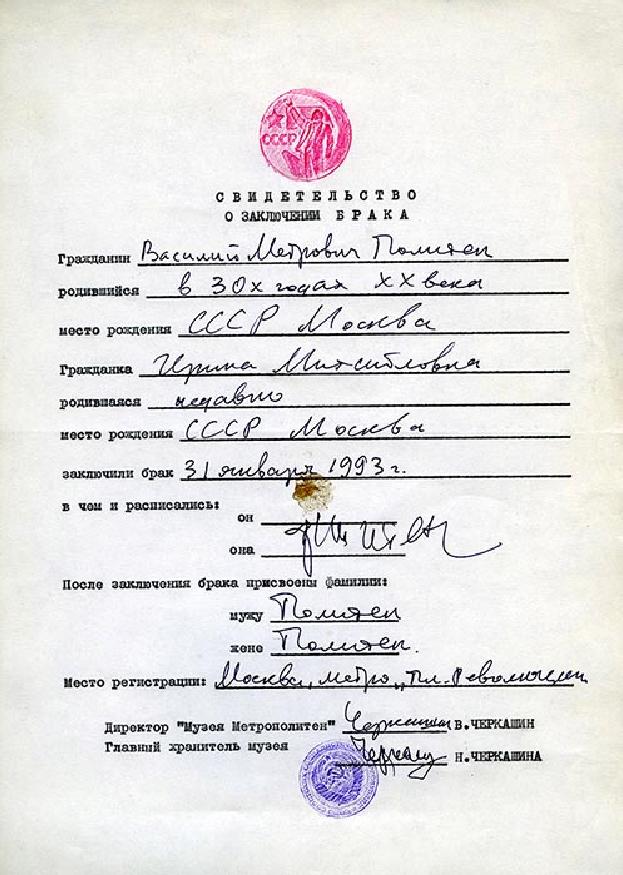 СССР
СВИДЕТЕЛЬСТВО
О ЗАКЛЮЧЕНИИ БРАКА
Гражданин Василий Метрович Политен
родившийся в 30х годах XX века
место рождения СССР Москва
Гражданка Ирина
родившаяся недавно
место рождения СССР Москва
заключили брак 31 января 1993 г.
в чем и расписались:
он
она
После заключения брака присвоены фамилии:
мужу Политен
жене Политен.
Место регистрации: Москва, метро „Пл. Революции
Директор "Музея Метрополитен" В.ЧЕРКАШИН
Главный хранитель музея Н.ЧЕРКАШИНА